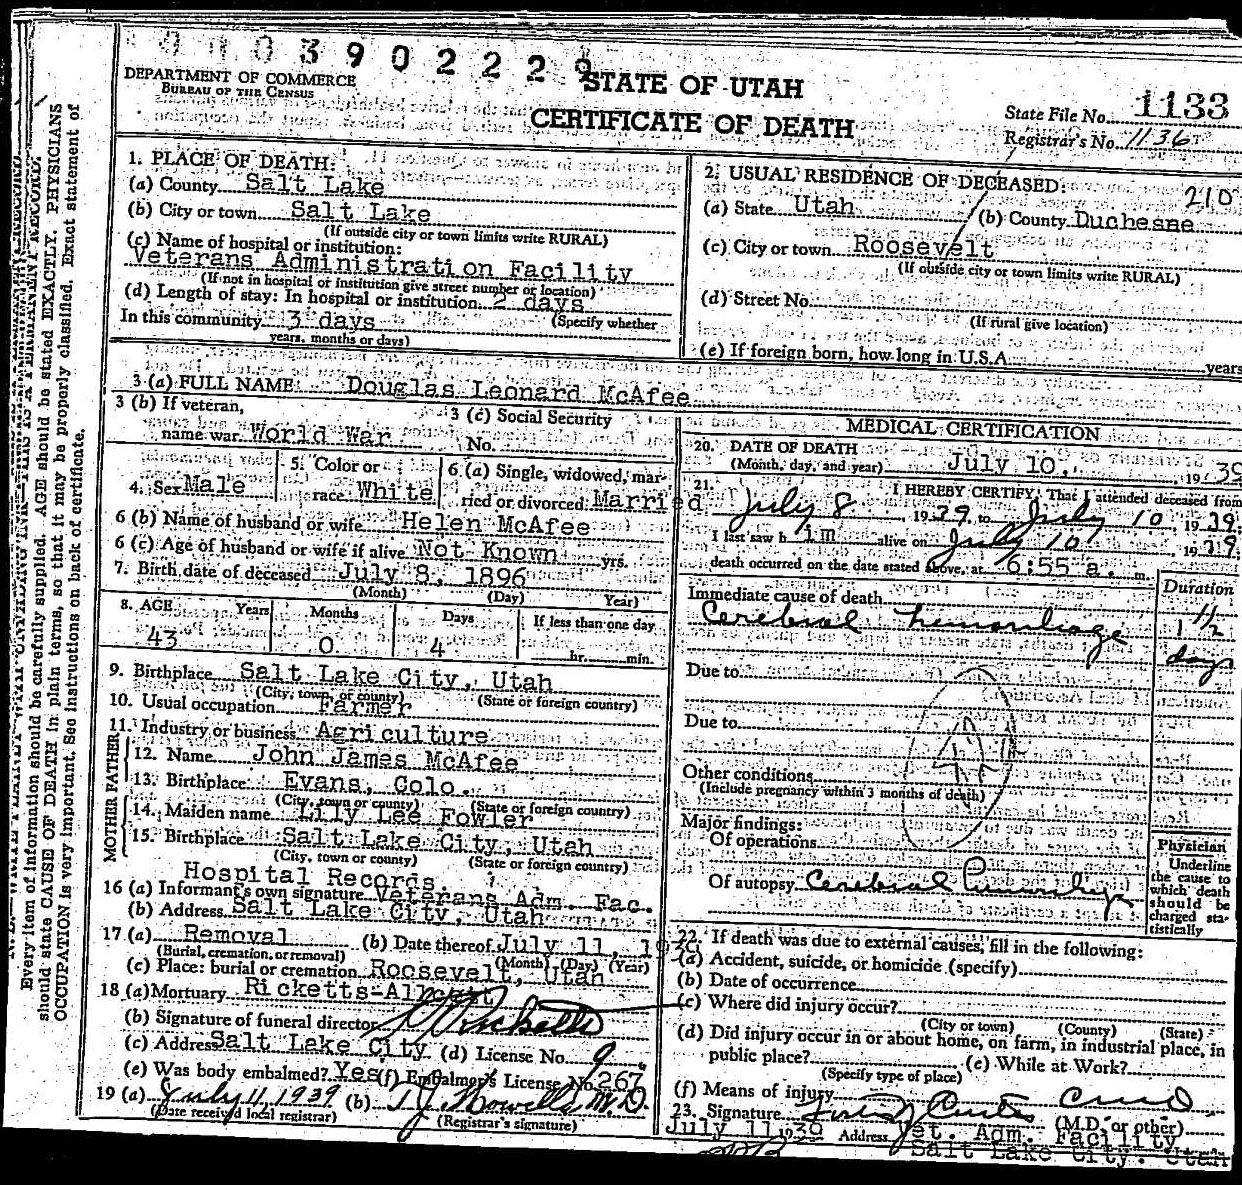 3902229
DEPARTMENT OF COMMERCE
BUREAU OF THE CENSUS
STATE OF UTAH
CERTIFICATE OF DEATH
State File No. 1133
Registrar's No. 1136
1. PLACE OF DEATH:
(a) County Salt Lake
(b) City or town Salt Lake
(If outside city or town limits write RURAL)
(c) Name of hospital or institution:
Veterans Administration Facility
(If not in hospital or institution give street number or location)
(d) Length of stay: In hospital or institution 2 days
In this community 3 days (Specify whether
years, months or days)
2. USUAL RESIDENCE OF DECEASED:
210
(a) State Utah (b) County Duchesne
(c) City or town Roosevelt
(If outside city or town limits write RURAL)
(d) Street No.
(If rural give location)
(e) If foreign born, how long in U.S.A. years
3 (a) FULL NAME Douglas Leonard McAfee
3 (b) If veteran, 3 (c) Social Security
name war World War No.
4. Sex Male 5. Color or race White 6. (a) Single, widowed, married or divorced Married
6 (b) Name of husband or wife Helen McAfee
6 (c) Age of husband or wife if alive Not Known yrs.
7. Birth date of deceased July 8, 1896
(Month) (Day) Year)
8. AGE Years Months Days If less than one day
43 0 4 hr. min.
9. Birthplace Salt Lake City, Utah
(City, town, or county) (State or foreign country)
10. Usual occupation Farmer
11. Industry or business Agriculture
FATHER
12. Name John James McAfee
13. Birthplace Evans, Colo.
(City, town or county) (State or foreign country)
MOTHER
14. Maiden name Lily Lee Fowler
15. Birthplace Salt Lake City, Utah
(City, town or county) (State or foreign country)
Hospital Records
16 (a) Informant's own signature Veterans Adm. Fac.
(b) Address Salt Lake City, Utah
17 (a) Removal (b) Date thereof July 11, 1939
(Burial, cremation, or removal) (Month) (Day) (Year)
(c) Place: burial or cremation Roosevelt, Utah
18 (a) Mortuary Ricketts-Allcott
(b) Signature of funeral director Ricketts
(c) Address Salt Lake City (d) License No. 9
(e) Was body embalmed? Yes (f) Embalmer's License No. 267
19 (a) July 11, 1939 (b) T. J. Howells M.D.
(Date received local registrar) (Registrar's signature)
MEDICAL CERTIFICATION
20. DATE OF DEATH
(Month, day, and year) July 10, 1939
21. I HEREBY CERTIFY, That I attended deceased from
July 8 1939, to July 10 1939.
I last saw him alive on July 10 1939.
death occurred on the date stated above, at 6:55 a. m.
Duration
Immediate cause of death
Cerebral hemorrhage 1 1/2 days
Due to
Due to
Other conditions
(Include pregnancy within 3 months of death)
Major findings:
Of operations
Of autopsy Cerebral
Physician
Underline the cause to which death should be charged statistically
22. If death was due to external causes, fill in the following:
(a) Accident, suicide, or homicide (specify)
(b) Date of occurrence
(c) Where did injury occur?
(City or town) (County) (State)
(d) Did injury occur in or about home, on farm, in industrial place, in
public place? (e) While at Work?
(Specify type of place)
(f) Means of injury
23. Signature Curtis
(M.D. or other)
July 11 1939 Address Vet. Adm. Facility
Salt Lake City, Utah
Every item of information should be carefully supplied. AGE should be stated EXACTLY. PHYSICIANS
should state CAUSE OF DEATH in plain terms, so that it may be properly classified. Exact statement of
OCCUPATION is very important. See instructions on back of certificate.